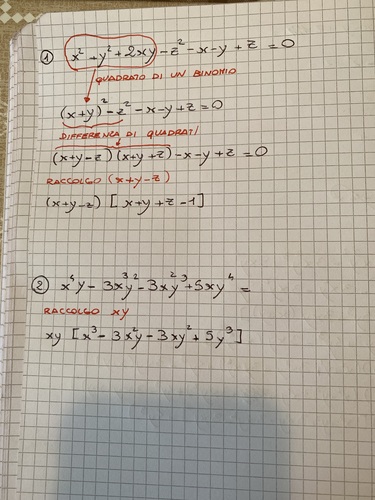 ① x² + y² + 2xy - z² - x - y + z = 0
QUADRATO DI UN BINOMIO
(x+y)² - z² - x - y + z = 0
DIFFERENZA DI QUADRATI
(x+y-z)(x+y+z) - x - y + z = 0
RACCOLGO (x+y-z)
(x+y-z) [x+y+z-1]
② x⁴y - 3x³y² - 3x²y³ + 5xy⁴ =
RACCOLGO xy
xy [x³ - 3x²y - 3xy² + 5y³]